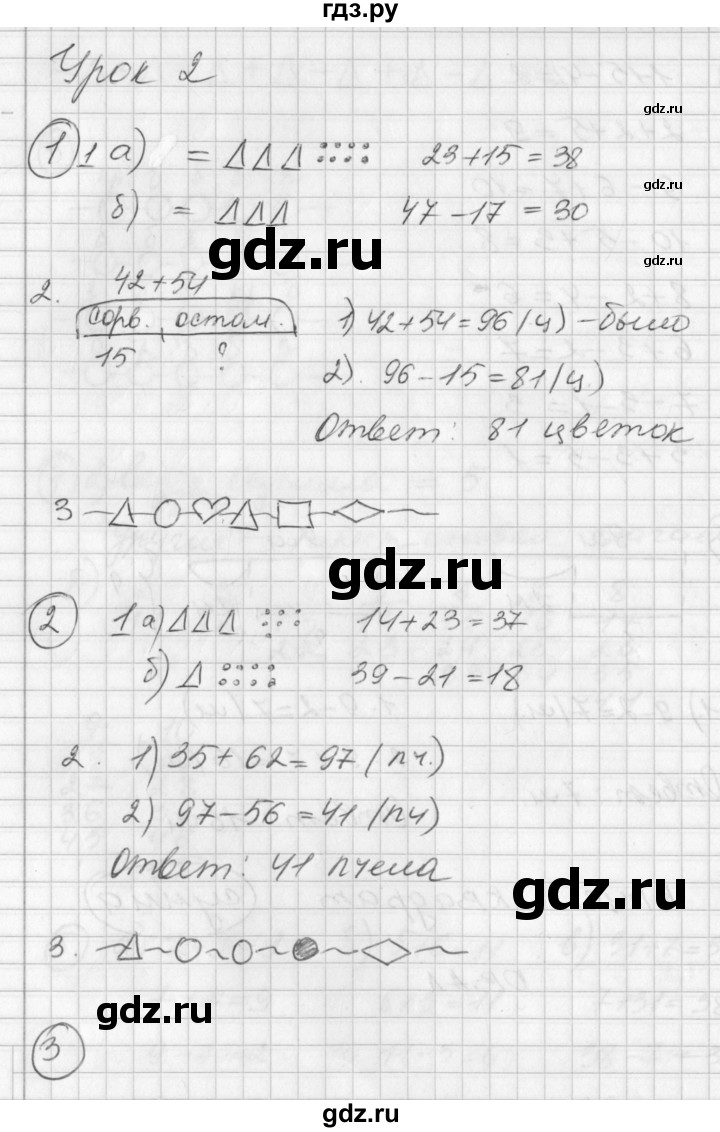 гдз.ру
Урок 2
gdz.ru
1 1 а) = △△△ 23+15=38
gdz.ru
б) = △△△ 47-17=30
gdz.ru
gdz.ru
2. 42+54
сорв. остал.
15 ?
1) 42+54=96(ц) - было
2). 96-15=81(ц.)
Ответ: 81 цветок
3
gdz.ru
2 1 а) △△△ 14+23=37
б) △ 39-21=18
2. 1) 35+62=97(пч.)
2) 97-56=41(пч)
Ответ: 41 пчела
gdz.ru
3.
gdz.ru
3
gdz.ru